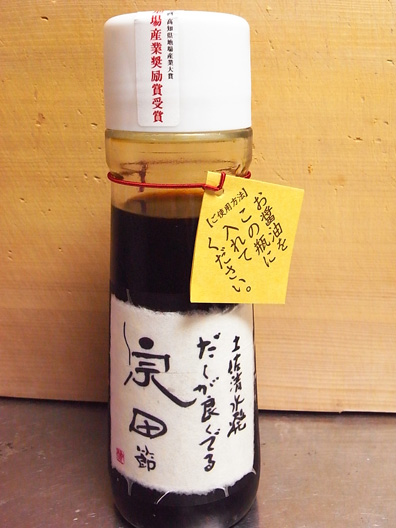 高知県地場産業大賞
場産業奨励賞受賞
【ご使用方法】
お醤油を
この瓶に
入れて
ください。
土佐清水発
だしが良くでる
宗田節